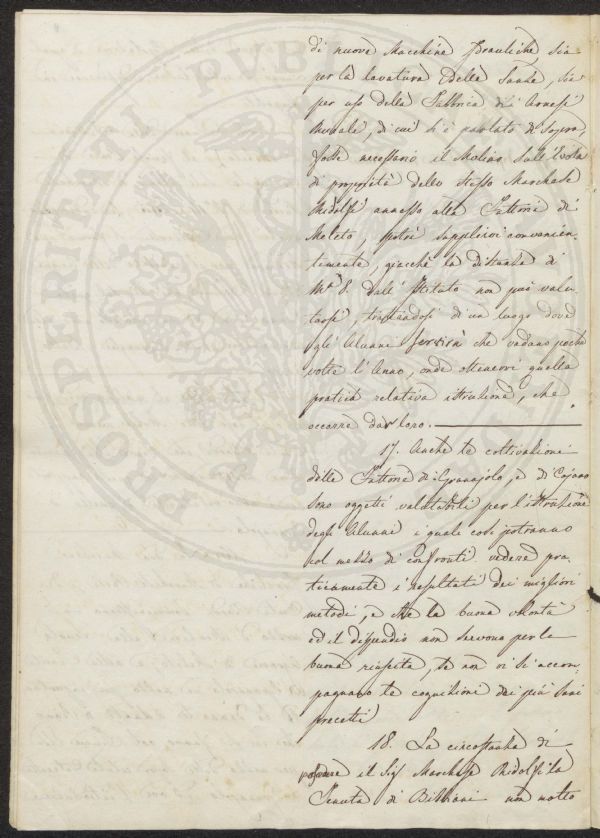 di nuove Macchine Idrauliche, sia
per la lavatura delle Lane, sia
per uso della Fabbrica di Arnesi
Rurale, di cui si è parlato di Sopra,
fosse necessario il Molino Sull'Evola
di proprietà dello stesso Marchese
Ridolfi annesso alla Fattoria di
Meleto, potrà Supplirvi convenien-
temente, giacchè la distanza di
M.a 8. dall'Istituto non può valu-
tarsi, trattandosi di un luogo dove
gli Alunni servirà che vadano poche
volte l'Anno, onde ottenervi quella
pratica relativa istruzione, che
occorre dar loro.
17. Anche le coltivazioni
delle Fattorie di Granajolo, e di Cojano
sono oggetti valutabili per l'istruzione
degli Alunni i quali così potranno
col mezzo di confronti vedere pra-
ticamente i resultati dei migliori
metodi, e che la buona volontà
ed il dispendio non servono per la
buona riuscita, se non vi si accom-
pagnano le cognizioni dei più Sani
precetti
18. La circostanza di
il Sig. Marchese Ridolfi la
Tenuta di Bibbiani non molto
PROSPERITATI PVBL